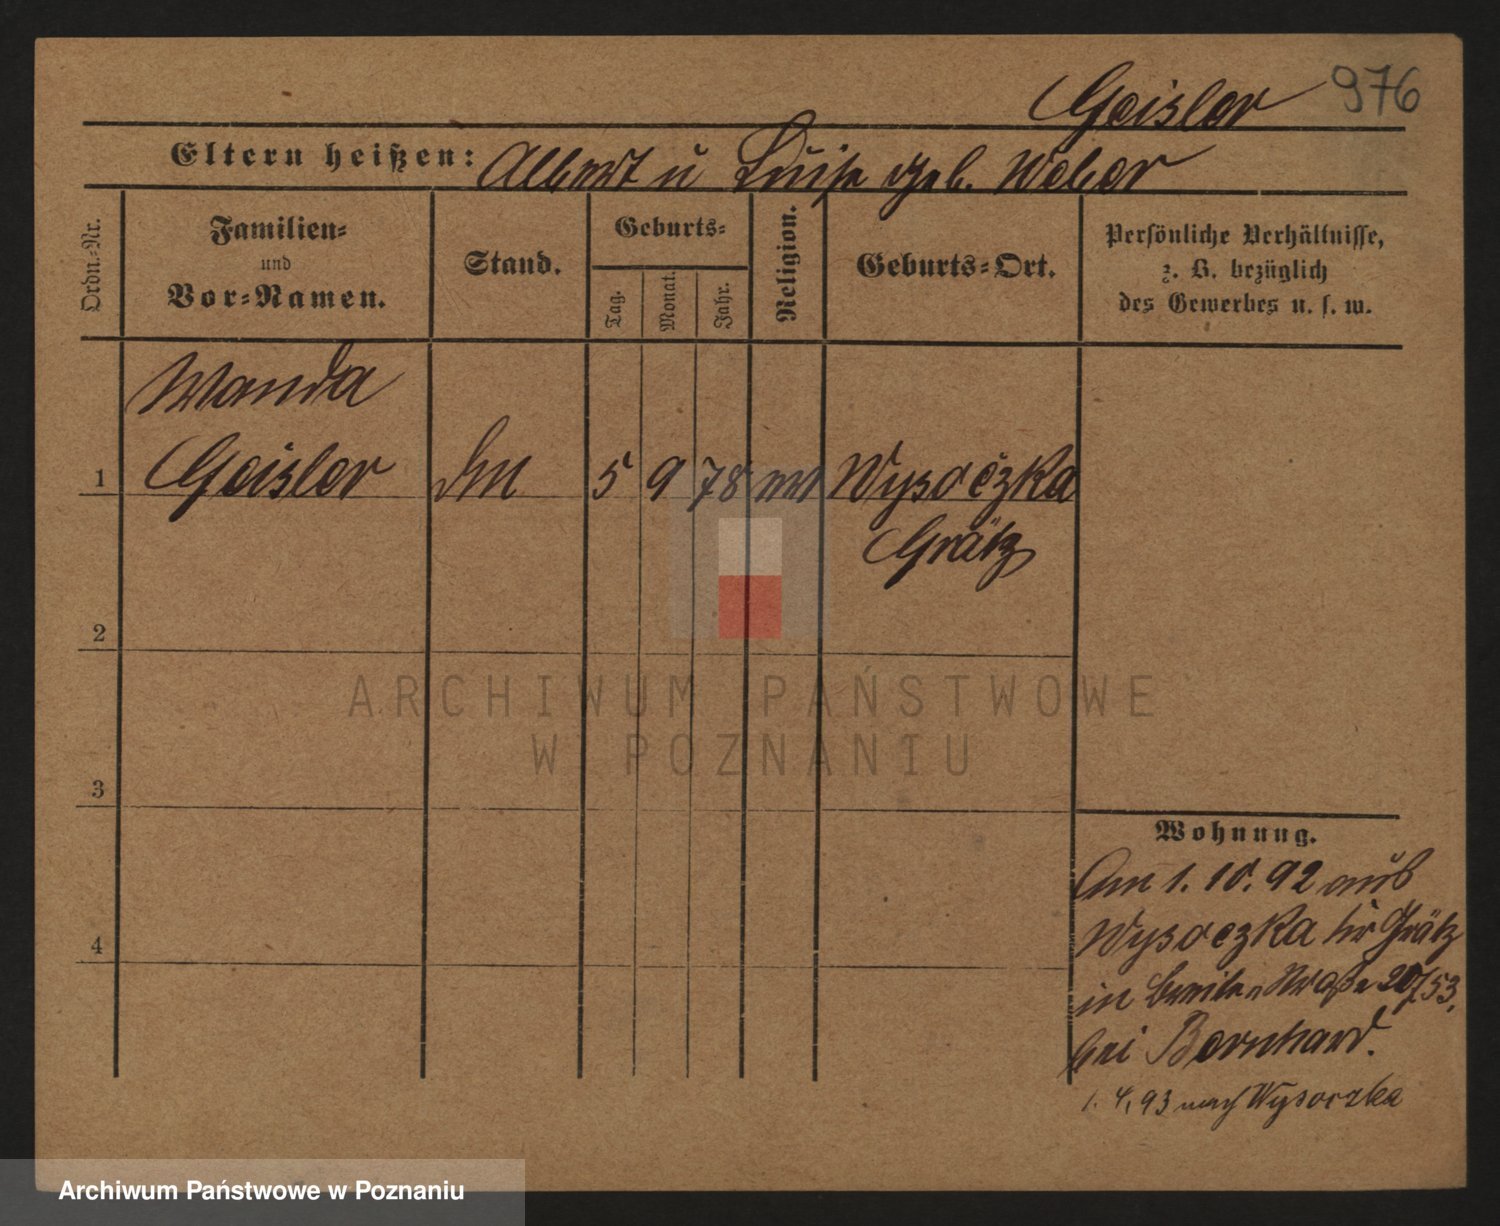 Geisler 976
Eltern heißen: Albert u Luise geb. Weber
Ordn.-Nr.
Familien-
und
Vor-Namen.
Stand.
Geburts-
Tag.
Monat.
Jahr.
Religion.
Geburts-Ort.
Persönliche Verhältnisse,
z. B. bezüglich
des Gewerbes u. s. w.
Wanda
1 Geisler 5 9 78 Wysoczka
Grätz
2
3
4
Wohnung.
Am 1. 10. 92 aus
Wysoczka Grätz
in Breitestraße 20/53.
bei Bernhard.
1. 4. 93 nach Wysoczka
ARCHIWUM PAŃSTWOWE
W POZNANIU
Archiwum Państwowe w Poznaniu